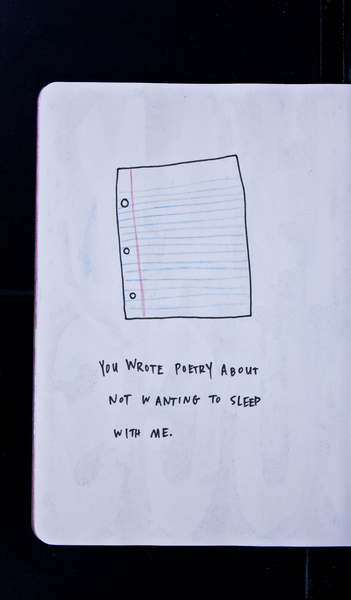 YOU WROTE POETRY ABOUT
NOT WANTING TO SLEEP
WITH ME.